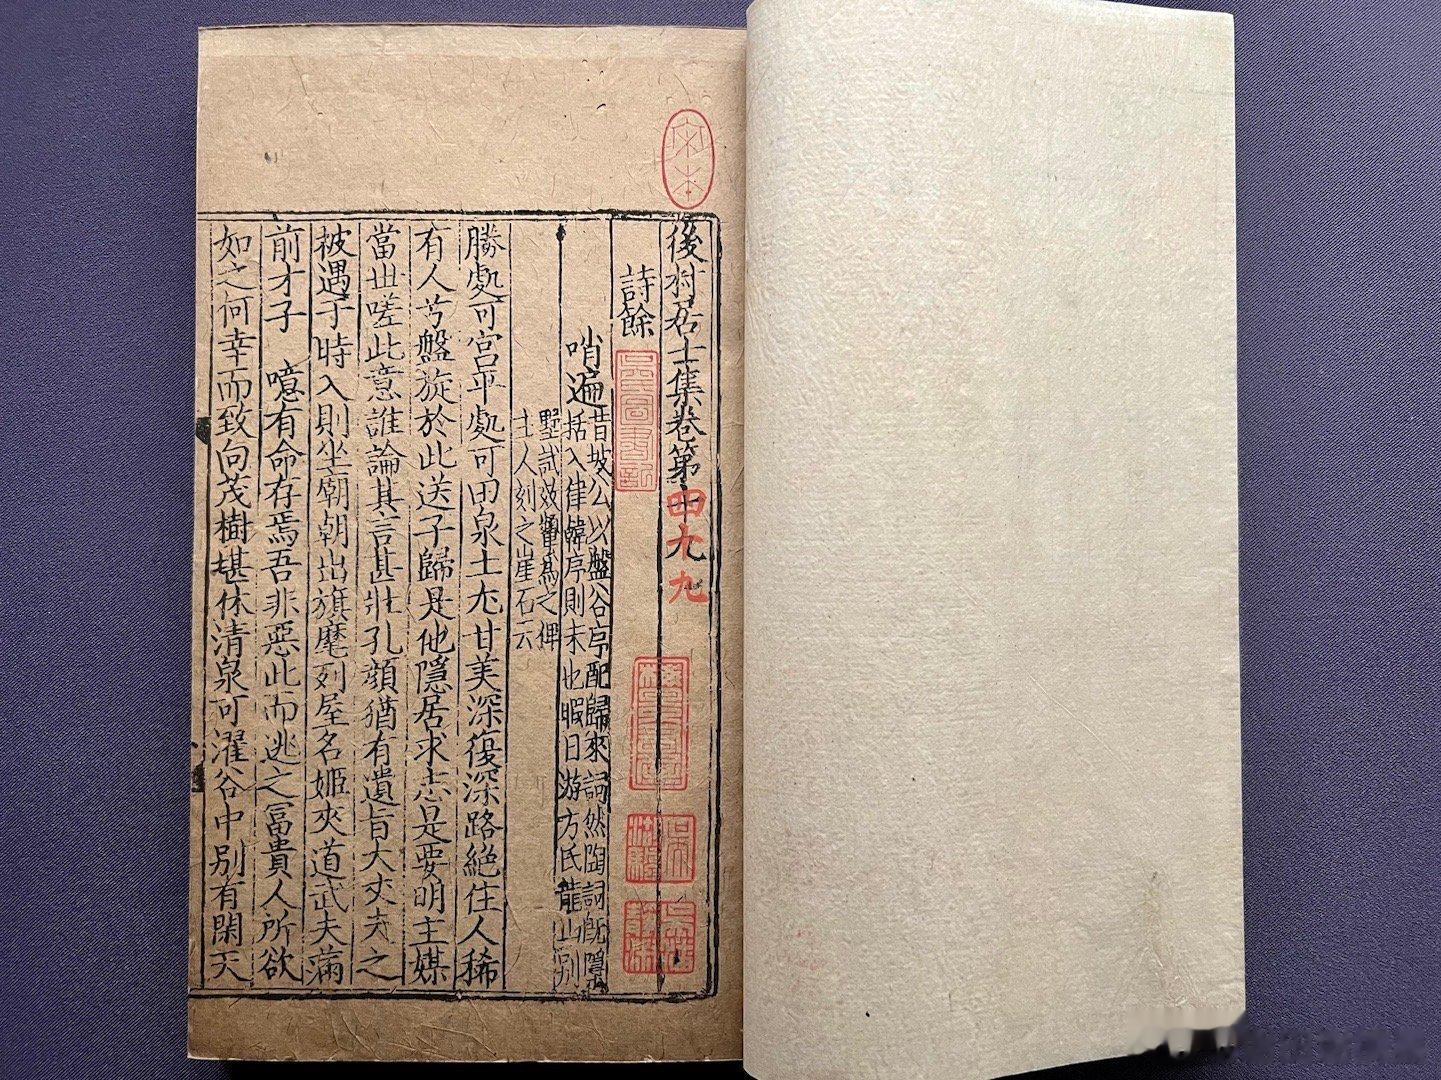 宋本
後村居士集卷第十九
四 九
詩餘
哨遍
昔坡公以盤谷序配歸來詞然陶詞旣隱
括入律韓序則未也暇日游方氏龍山別
墅試效顰爲之俾
士人刻之崖石云
勝處可宮平處可田泉土尤甘美深復深路絶住人稀
有人兮盤旋於此送子歸是他隱居求志是要明主媒
當世嗟此意誰論其言甚壯孔顔猶有遺旨大丈夫之
被遇于時入則坐廟朝出旗麾列屋名姬夾道武夫滿
前才子 噫有命存焉吾非惡此而逃之富貴人所欲
如之何幸而致向茂樹堪休清泉可濯谷中別有閑天